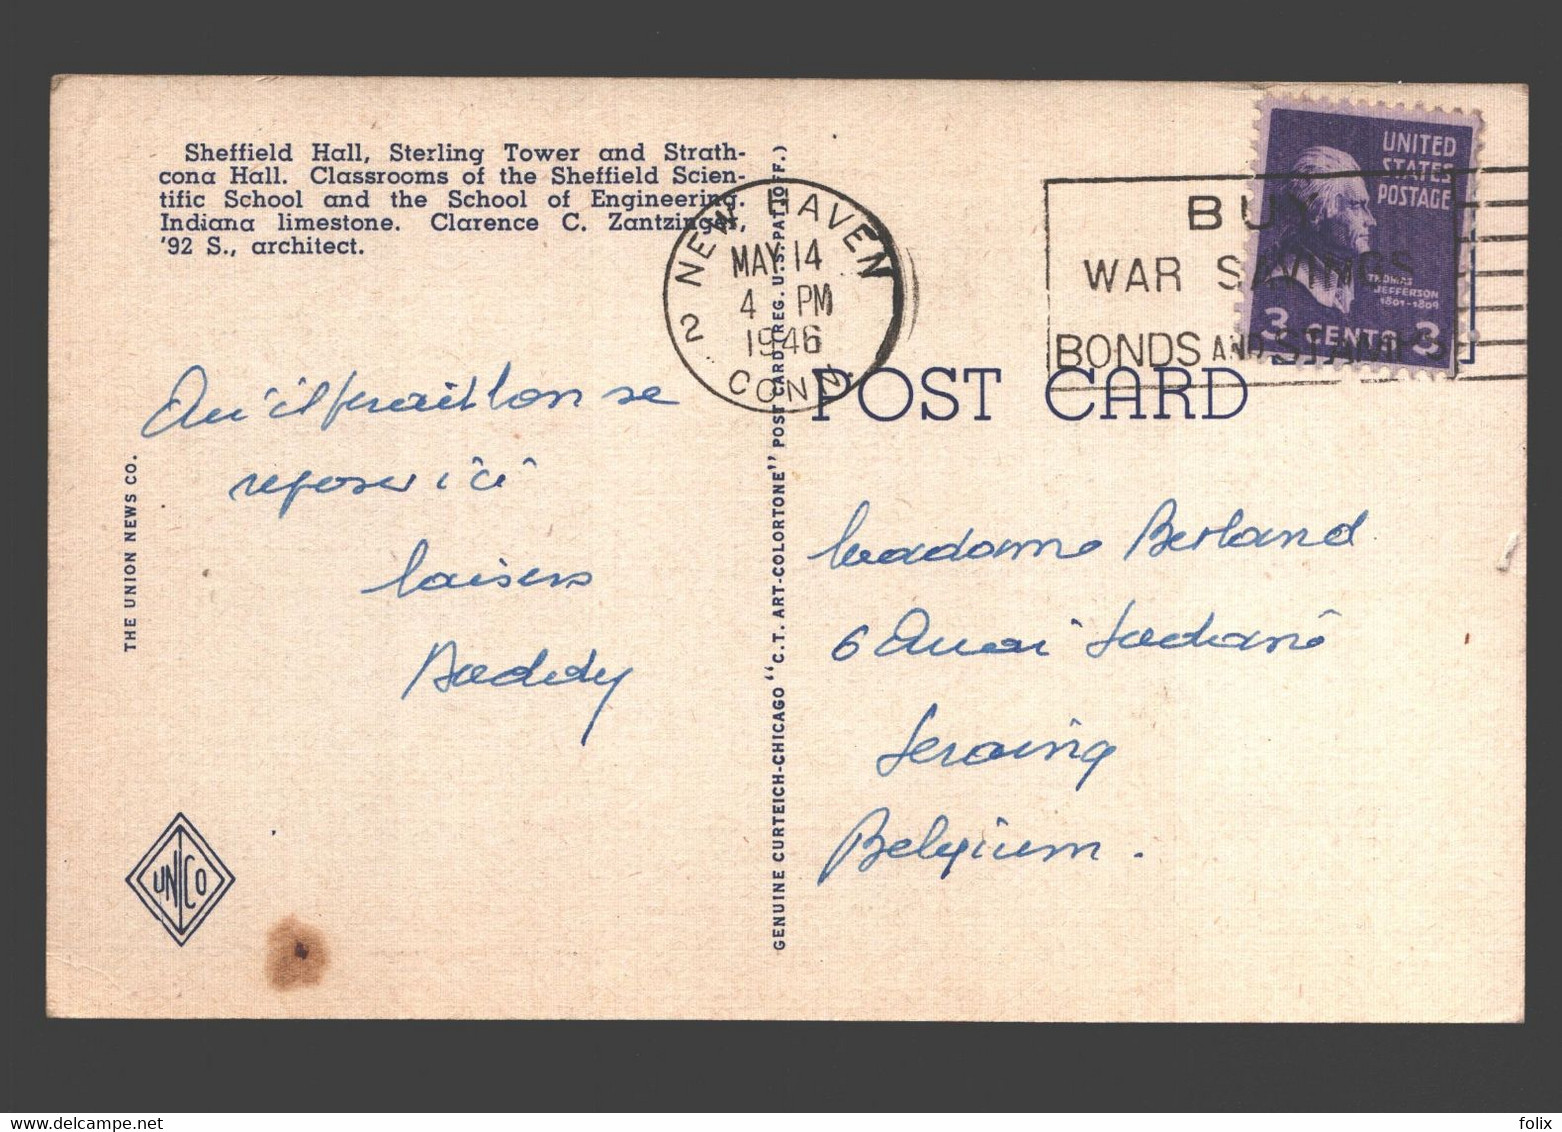 Sheffield Hall, Sterling Tower and Strath-
cona Hall. Classrooms of the Sheffield Scien-
tific School and the School of Engineering.
Indiana limestone. Clarence C. Zantzinger,
'92 S., architect.
Qu'il ferait bon se
reposer ici
baisers
Daddy
THE UNION NEWS CO.
UNCO
GENUINE CURTEICH-CHICAGO "C.T. ART-COLORTONE" POST CARD (REG. U.S. PAT. OFF.)
NEW HAVEN 2
MAY 14
4 PM
1946
CONN.
BUY
WAR SAVINGS
BONDS AND STAMPS
UNITED
STATES
POSTAGE
THOMAS
JEFFERSON
1801-1809
3 CENTS 3
POST CARD
Madame Berland
6 Quai
Seraing
Belgium.
folix